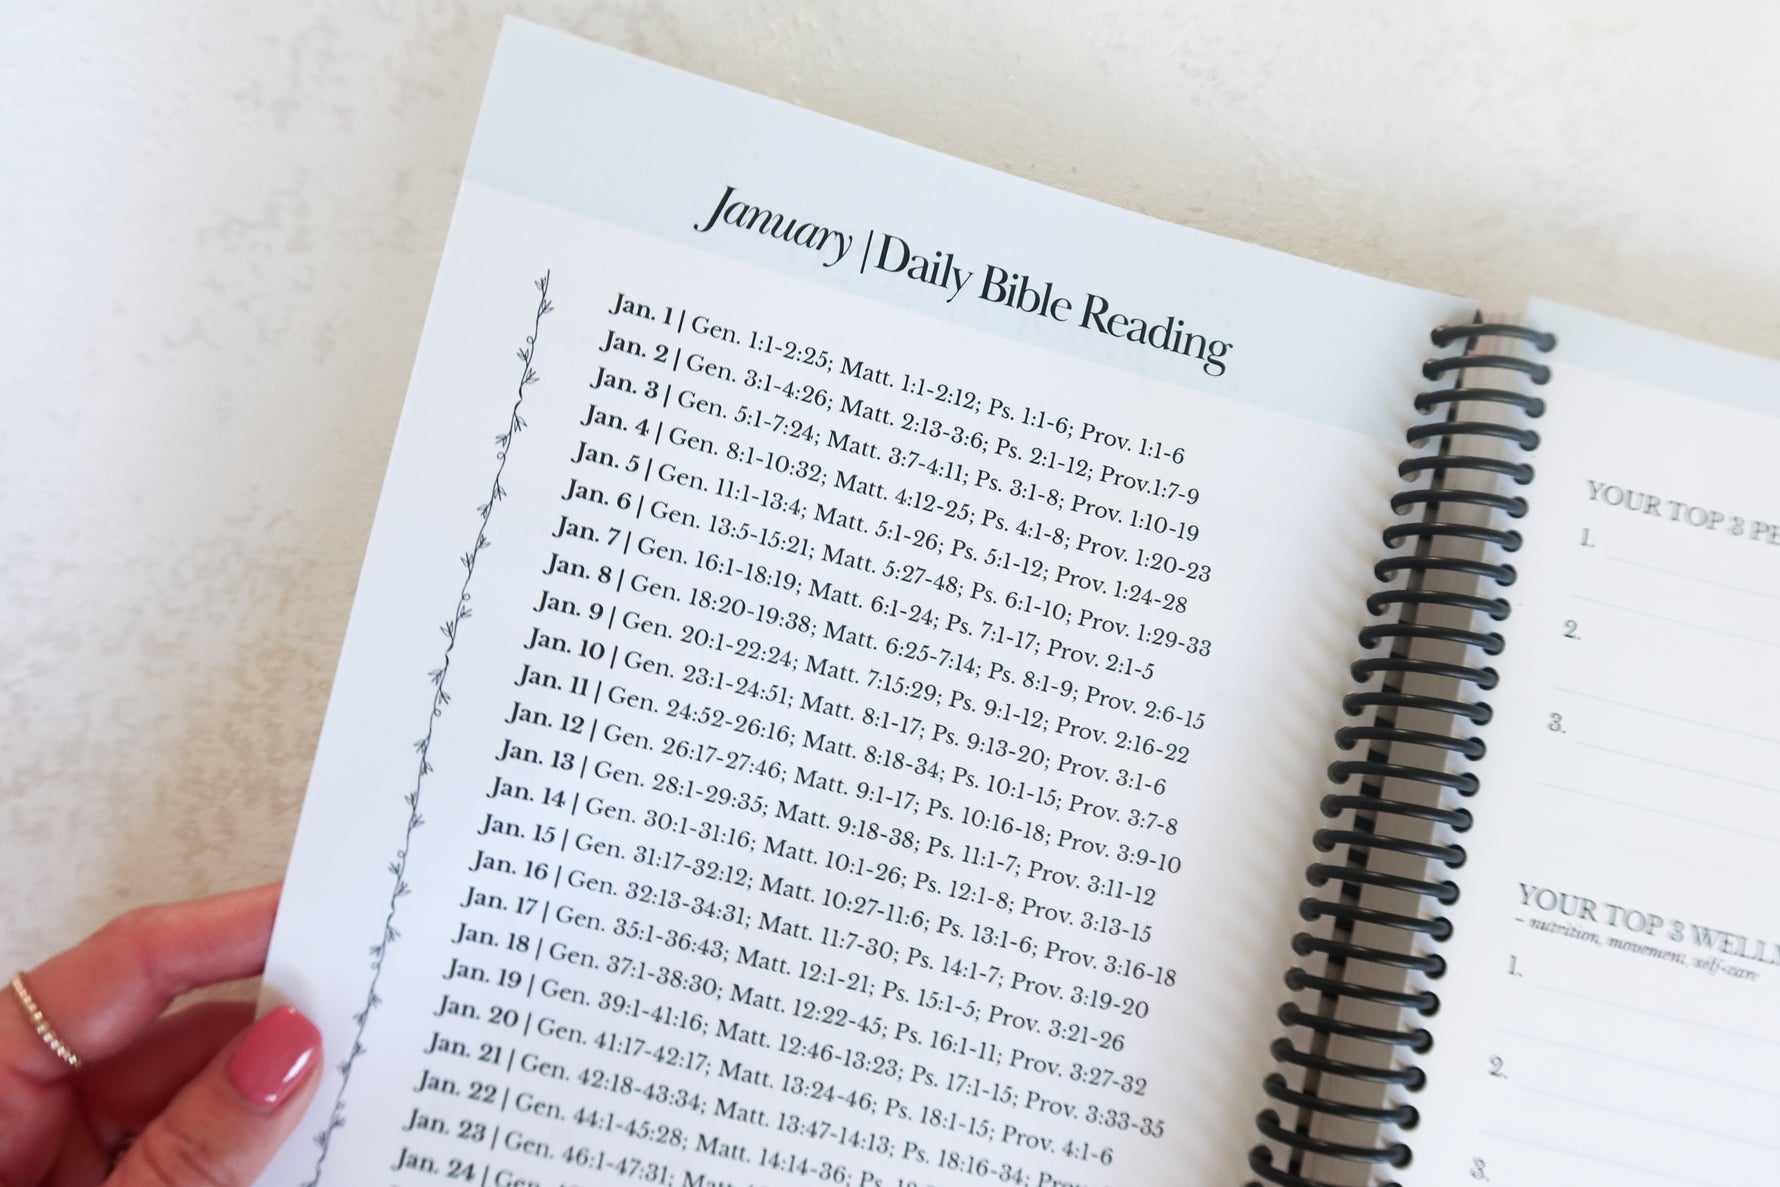 January | Daily Bible Reading
Jan. 1 | Gen. 1:1-2:25; Matt. 1:1-2:12; Ps. 1:1-6; Prov. 1:1-6
Jan. 2 | Gen. 3:1-4:26; Matt. 2:13-3:6; Ps. 2:1-12; Prov.1:7-9
Jan. 3 | Gen. 5:1-7:24; Matt. 3:7-4:11; Ps. 3:1-8; Prov. 1:10-19
Jan. 4 | Gen. 8:1-10:32; Matt. 4:12-25; Ps. 4:1-8; Prov. 1:20-23
Jan. 5 | Gen. 11:1-13:4; Matt. 5:1-26; Ps. 5:1-12; Prov. 1:24-28
Jan. 6 | Gen. 13:5-15:21; Matt. 5:27-48; Ps. 6:1-10; Prov. 1:29-33
Jan. 7 | Gen. 16:1-18:19; Matt. 6:1-24; Ps. 7:1-17; Prov. 2:1-5
Jan. 8 | Gen. 18:20-19:38; Matt. 6:25-7:14; Ps. 8:1-9; Prov. 2:6-15
Jan. 9 | Gen. 20:1-22:24; Matt. 7:15:29; Ps. 9:1-12; Prov. 2:16-22
Jan. 10 | Gen. 23:1-24:51; Matt. 8:1-17; Ps. 9:13-20; Prov. 3:1-6
Jan. 11 | Gen. 24:52-26:16; Matt. 8:18-34; Ps. 10:1-15; Prov. 3:7-8
Jan. 12 | Gen. 26:17-27:46; Matt. 9:1-17; Ps. 10:16-18; Prov. 3:9-10
Jan. 13 | Gen. 28:1-29:35; Matt. 9:18-38; Ps. 11:1-7; Prov. 3:11-12
Jan. 14 | Gen. 30:1-31:16; Matt. 10:1-26; Ps. 12:1-8; Prov. 3:13-15
Jan. 15 | Gen. 31:17-32:12; Matt. 10:27-11:6; Ps. 13:1-6; Prov. 3:16-18
Jan. 16 | Gen. 32:13-34:31; Matt. 11:7-30; Ps. 14:1-7; Prov. 3:19-20
Jan. 17 | Gen. 35:1-36:43; Matt. 12:1-21; Ps. 15:1-5; Prov. 3:21-26
Jan. 18 | Gen. 37:1-38:30; Matt. 12:22-45; Ps. 16:1-11; Prov. 3:27-32
Jan. 19 | Gen. 39:1-41:16; Matt. 12:46-13:23; Ps. 17:1-15; Prov. 3:33-35
Jan. 20 | Gen. 41:17-42:17; Matt. 13:24-46; Ps. 18:1-15; Prov. 4:1-6
Jan. 21 | Gen. 42:18-43:34; Matt. 13:47-14:13; Ps. 18:16-34;
Jan. 22 | Gen. 44:1-45:28; Matt. 14:14-36; Ps.
Jan. 23 | Gen. 46:1-47:31; Matt.
Jan. 24 | Gen.
YOUR TOP 3
1.
2.
3.
YOUR TOP 3
- nutrition, movement, self-care
1.
2.
3.